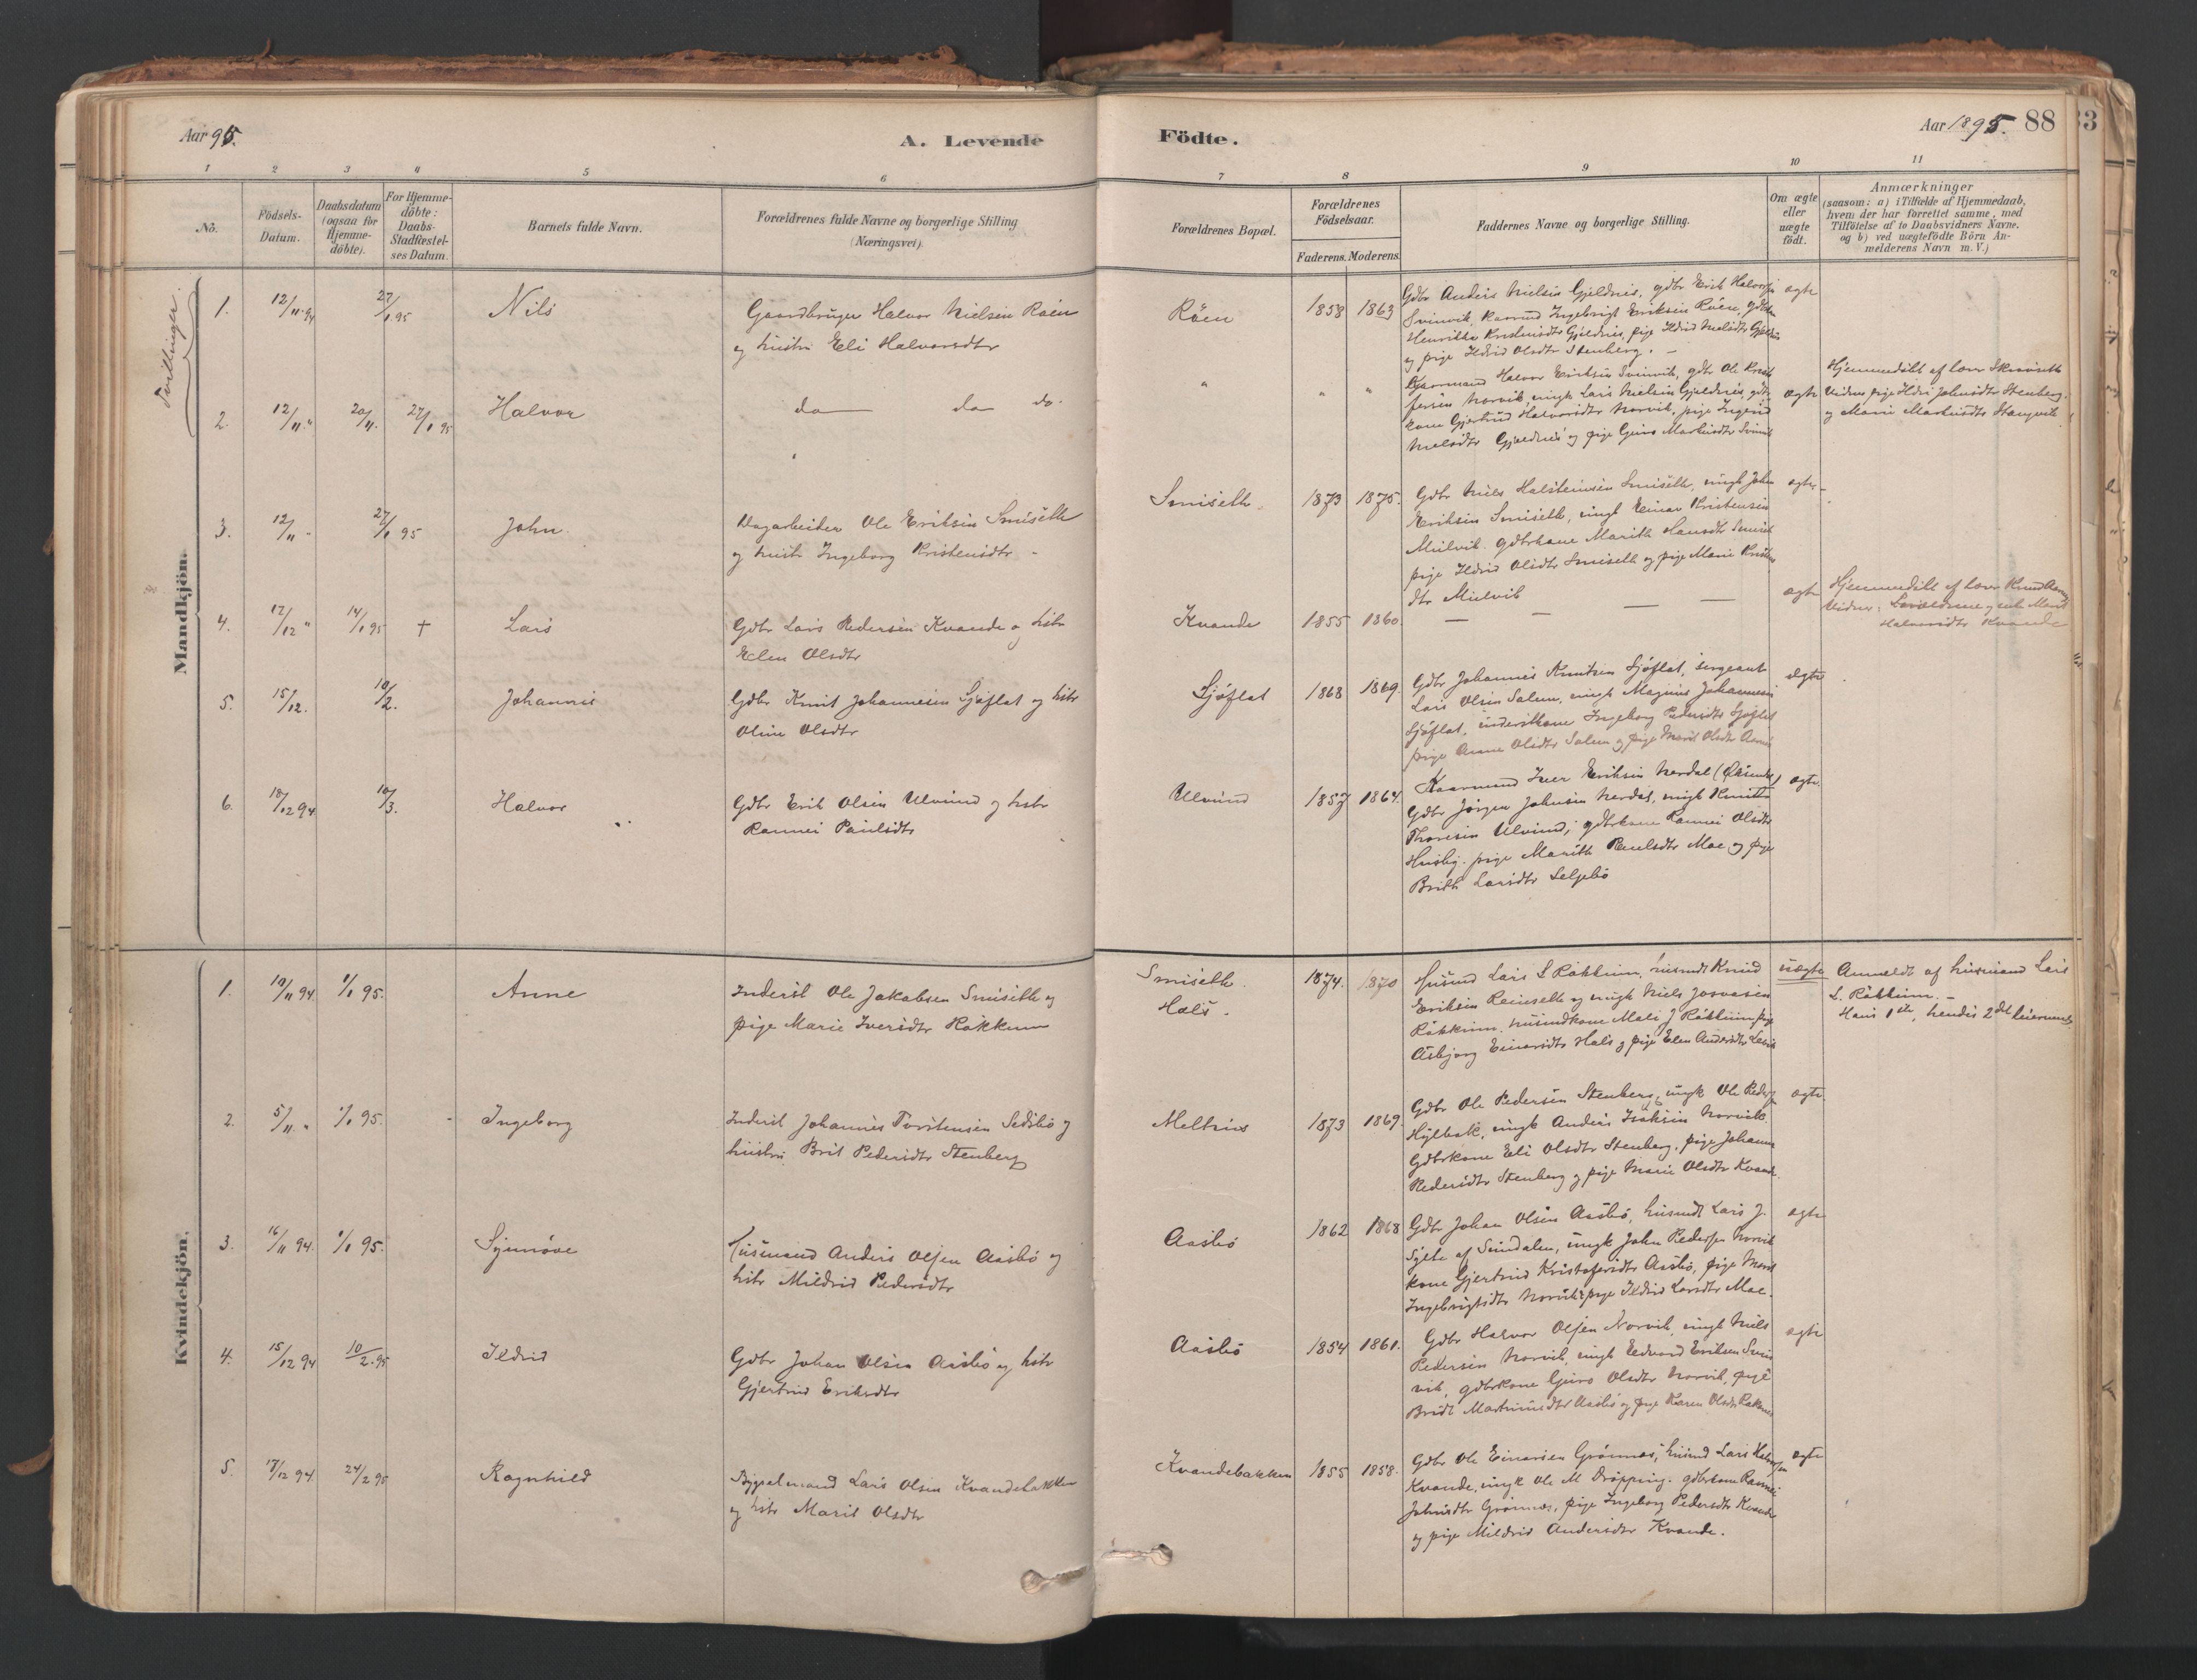 Aar 95.
A. Levende
Födte.
Aar 1895. 88
1 2 3 4 5 6 7 8 9 10 11
No.
Födsels-
Datum.
Daabsdatum
(ogsaa for
Hjemme-
döbte).
For Hjemme-
döbte:
Daabs-
Stadfæstel-
ses Datum.
Barnets fulde Navn.
Forældrenes fulde Navne og borgerlige Stilling
(Næringsvei).
Forældrenes Bopæl.
Forældrenes
Födselsaar.
Faderens. Moderens.
Faddernes Navne og borgerlige Stilling.
Om ægte
eller
uægte
födt.
Anmærkninger
(saasom: a) i Tilfælde af Hjemmedaab,
hvem der har forrettet samme, med
Tilföielse af to Daabsvidners Navne,
og b) ved uægtefödte Börn An-
melderens Navn m. V.)
Tvillinger.
Mandkjön.
1. 12/11 94 27/1 95 Nils
Gaardbruger Halvor Nielsen Röen
og hustru Eli Halvorsdtr
Röen 1858 1863
Gdbr Anders Nielsen Gjeldnes, gdbr Erik Halvorsen
Svinvik, Kaarmd Ingebrigt Eriksen Röen, gdbkn
Henrikka Kristensdtr Gjeldnes, pige Ildrid Nielsdtr Gjeldnes
og pige Ildrid Olsdtr Stenberg. -
ægte
2. 12/11 " 20/11. 27/1 95 Halvor
do do do.
" " "
Kaarmand Halvor Eriksen Svinvik, gdbr Ole Krist
fersen Norvik, ungk Lars Nielsen Gjeldnes, gdbr
kone Gjertrud Halvorsdtr Norvik, pige Ingerid
Nielsdtr Gjeldnes og pige Guro Markusdtr Svinvik
ægte
Hjemmedöbt af lærer Skrövseth
Vidner pige Ildri Johnsdtr Stenberg
og Marie Markusdtr Stangvik
3. 12/11 " 27/1 95 John.
Dagarbeider Ole Eriksen Smiseth
og hustr Ingeborg Kristensdtr -
Smiseth. 1873 1875.
Gdbr Niels Halsteinsen Smiseth, ungk John
Eriksen Smiseth, ungk Einar Kristensen
Mielvik. gdbrkone Marith Hansdtr Smiseth
pige Ildrid Olsdtr Smiseth og pige Marie Kristens
dtr Mielvik
ægte -
4. 12/12 " 14/1 95 † Lars
Gdbr Lars Pedersen Kvande og hstr
Elen Olsdtr
Kvande 1855 1860
— — — —
ægte
Hjemmedöbt af lærer Knud
Vidner: Forældrene og enke Marit
Halvorsdtr Kvande
5. 15/12. 10/2. Johannes
Gdbr Knut Johannesen Sjöflat og hstr
Oline Olsdtr
Sjöflat 1868 1869.
Gdbr Johannes Knutsen Sjöflat, sergeant
Lars Olsen Salem, ungk Magnus Johannesen
Sjöflat, inderstkone Ingeborg Pedersdtr Sjöflat
pige Anne Olsdtr Salem og pige Marit Olsdtr
ægte
6. 18/12 94 10/3. Halvor
Gdbr Erik Olsen Ulvund og hstr
Rannei Paulsdtr
Ulvund 1857 1864.
Kaarmand Iver Eriksen Nerdal (Öksendal)
Gdbr Jörgen Johnsen Nerdal, ungk Knut
Thoresen Ulvund; gdbrkone Rannei Olsdtr
Husby. pige Marith Paulsdtr Moe og pige
Brith Larsdtr Seljebö
ægte.
Kvindekjön.
1. 10/11 94 1/1 95. Anne
Inderst Ole Jakobsen Smiseth og
pige Marie Iversdtr Rökkum
Smiseth.
Hals.
1874. 1870
Husmd Lars L Rökkum, husmdt Knud
Eriksen Reinseth og ungk Niels Josvasen
Rökkum. husmdkone Mali J Rökkum pige
Asbjorg Einarsdtr Hals og pige Elen Andersdtr
uægte
Anmeldt af husmand Lars
L. Rökkum. -
Hans 1ste, hendes 2det leiermaal
2. 5/11. " 1/1 95. Ingeborg
Inderst Johannes Torstensen Sedsbö og
hustru Brit Pedersdtr Stenberg
Meltrus 1873 1869.
Gdbr Ole Pedersen Stenberg, ungk Ole Peders
Hylbak, ungk Anders Isaksen Norvik.
Gdbrkone Eli Olsdtr Stenberg, pige Johanne
Pedersdtr Stenberg og pige Marie Olsdtr Kvande.
ægte.
3. 16/11 94. 1/1 95. Synnöve
Husmand Anders Olsen Aasbö og
hstr Mildrid Pedersdtr
Aasbö 1862 1868
Gdbr Johan Olsen Aasbö, husmdt Lars J.
Sylte af Sundalen, ungk John Pedersen Norvik
kone Gjertrud Kristofersdtr Aasbö, pige Marit
Ingebrigtsdtr Norvik pige Ildrid Larsdtr Moe.
ægte
4. 15/12 94 10/2.95 Ildrid
Gdbr Johan Olsen Aasbö og hstr
Gjertrud Eriksdtr
Aasbö 1854 1861.
Gdbr Halvor Olsen Norvik, ungk Niels
Pedersen Norvik, ungk Edvard Eriksen Svin
vik, gdbrkone Guro Olsdtr Norvik, pige
Bridt Martinusdtr Aasbö og pige Karen Olsdtr
ægte
5. 17/12 94. 24/2 95 Ragnhild
Bygselmand Lars Olsen Kvandebakken
og hstr Marit Olsdtr
Kvandebakken 1855 1858.
Gdbr Ole Einarsen Grönnes, husmd Lars Halvorsen
Kvande, ungk Ole M Dröpping. gdbrkone Rannei
Johnsdtr Grönnes, pige Ingeborg Pedersdtr Kvande
og pige Mildrid Andersdtr Kvande.
ægte